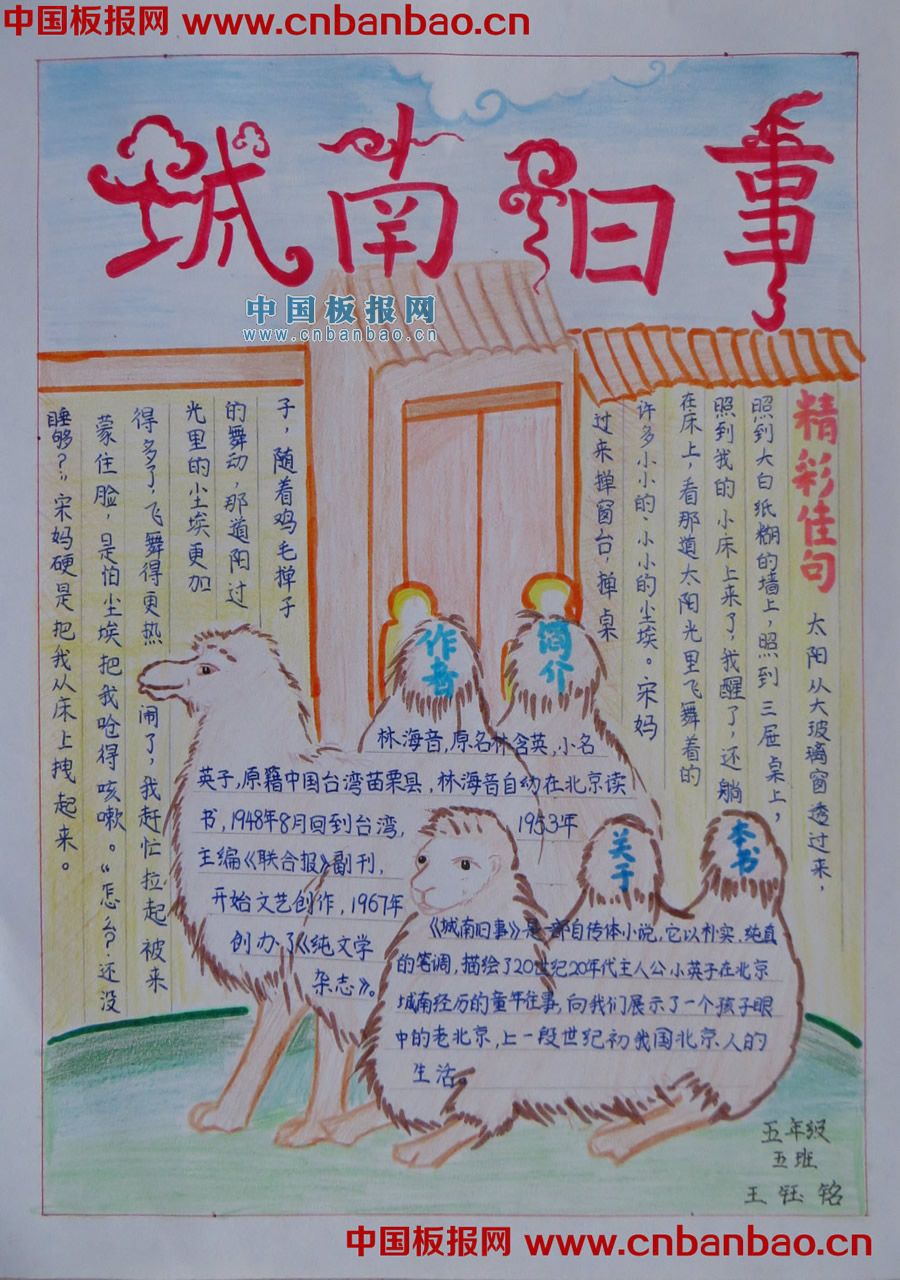 中国板报网 www.cnbanbao.cn
城南旧事
中国板报网
www.cnbanbao.cn
精彩佳句
太阳从大玻璃窗透过来，
照到大白纸糊的墙上，照到三屉桌上，
照到我的小床上来了，我醒了，还躺
在床上，看那道太阳光里飞舞着的
许多小小的、小小的尘埃。宋妈
过来掸窗台，掸桌
子，随着鸡毛掸子
的舞动，那道阳过
光里的尘埃更加
得多了，飞舞得更热闹了，我赶忙拉起被来
蒙住脸，是怕尘埃把我呛得咳嗽。“怎么？还没
睡够？”宋妈硬是把我从床上拽起来。
作者
简介
林海音，原名林含英，小名
英子，原籍中国台湾苗栗县，林海音自动在北京读
书，1948年8月回到台湾，1953年
主编《联合报》副刊，
开始文艺创作，1967年
创办了《纯文学
杂志》。
关于
本书
《城南旧事》是一部自传体小说，它以朴实、纯真
的笔调，描绘了20世纪20年代主人公小英子在北京
城南经历的童年往事，向我们展示了一个孩子眼
中的老北京，上一段世纪初我国北京人的
生活。
五年级
五班
王钰铭
中国板报网 www.cnbanbao.cn